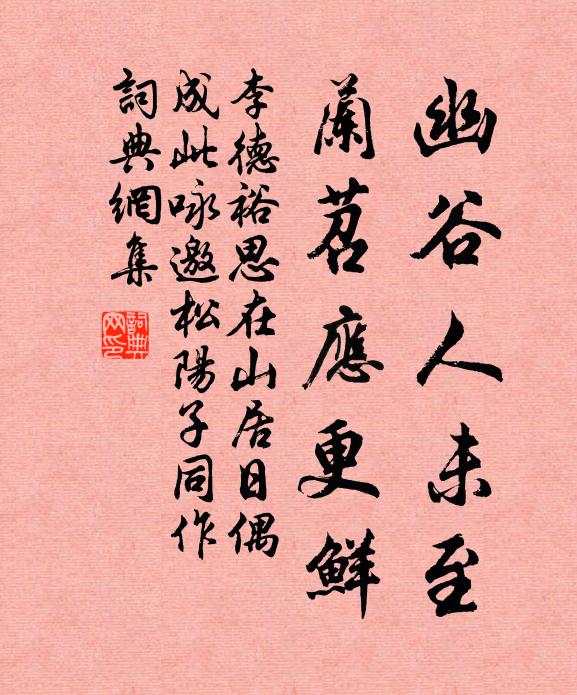 幽谷人未至
蘭苕應更鮮
李德裕思在山居日偶
成此咏邀松陽子同作
詞典網集
詞典網印